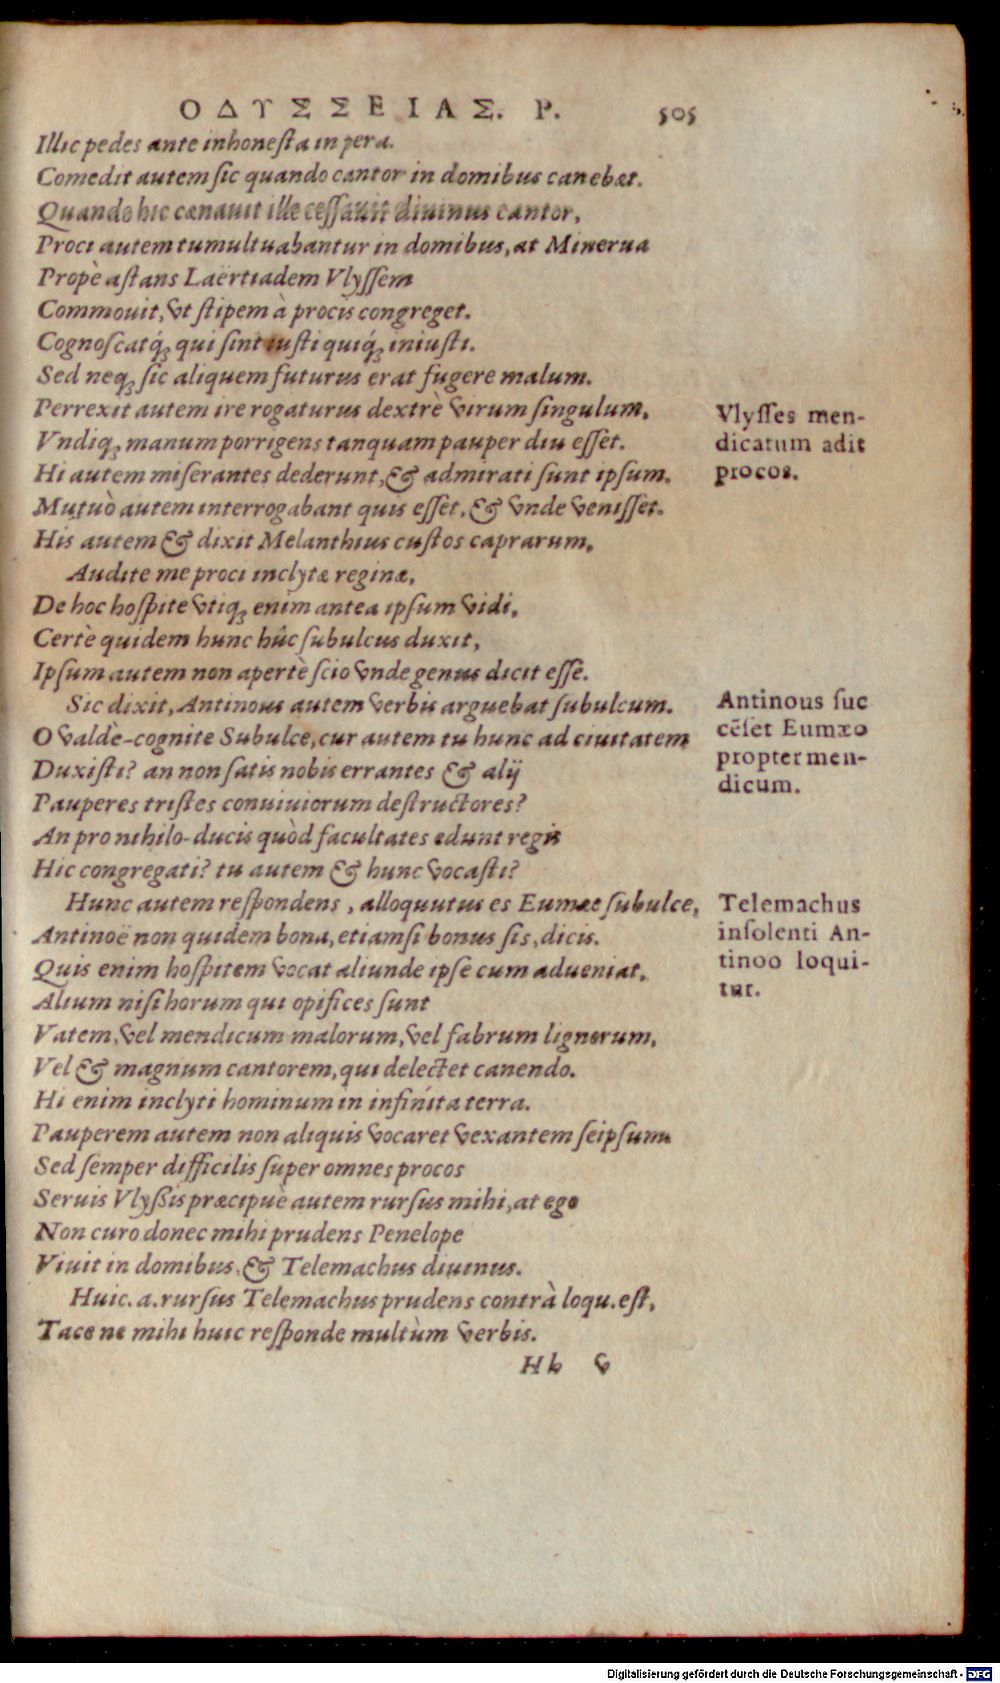 ΟΔΥΣΣΕΙΑΣ. Ρ. 505
Illic pedes ante inhonesta in pera.
Comedit autem sic quando cantor in domibus canebat.
Quando hic cœnauit ille cessauit diuinus cantor,
Proci autem tumultuabantur in domibus, at Minerua
Propè astans Laërtiadem Vlyssem
Commouit, vt stipem à procis congreget.
Cognoscatq́; qui sint iusti quiq́; iniusti.
Sed neq; sic aliquem futurus erat fugere malum.
Perrexit autem ire rogaturus dextrè virum singulum,
Vndiq; manum porrigens tanquam pauper diu esset.
Hi autem miserantes dederunt, & admirati sunt ipsum.
Mutuò autem interrogabant quis esset, & vnde venisset.
His autem & dixit Melanthius custos caprarum,
Audite me proci inclytæ reginæ,
De hoc hospite vtiq; enim antea ipsum vidi,
Certè quidem hunc hûc subulcus duxit,
Ipsum autem non apertè scio vnde genus dicit esse.
Sic dixit, Antinous autem verbis arguebat subulcum.
O valdè-cognite Subulce, cur autem tu hunc ad ciuitatem
Duxisti? an non satis nobis errantes & alij
Pauperes tristes conuiuiorum destructores?
An pro nihilo-ducis quòd facultates edunt regis
Hic congregati? tu autem & hunc vocasti?
Hunc autem respondens, alloquutus es Eumæe subulce,
Antinoë non quidem bona, etiamsi bonus sis, dicis.
Quis enim hospitem vocat aliunde ipse cum adueniat,
Alium nisi horum qui opifices sunt
Vatem, vel mendicum malorum, vel fabrum lignorum,
Vel & magnum cantorem, qui delectet canendo.
Hi enim inclyti hominum in infinita terra.
Pauperem autem non aliquis vocaret vexantem seipsum
Sed semper difficilis super omnes procos
Seruis Vlyssis præcipuè autem rursus mihi, at ego
Non curo donec mihi prudens Penelope
Viuit in domibus, & Telemachus diuinus.
Huic. a. rursus Telemachus prudens contrà loqu. est,
Tace ne mihi huic responde multùm verbis.
Hh v
Vlysses men-
dicatum adit
procos.
Antinous suc
cẽset Eumæo
propter men-
dicum.
Telemachus
insolenti An-
tinoo loqui-
tur.
Digitalisierung gefördert durch die Deutsche Forschungsgemeinschaft - DFG